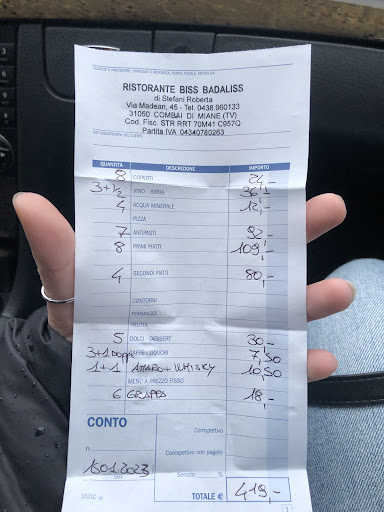 RISTORANTE BISS BADALISS
di Stefani Roberta
Via Madean, 45 - Tel. 0438.960133
31050 COMBAI DI MIANE (TV)
Cod. Fisc. STR RRT 70M41 C957Q
Partita IVA 04340780263
QUANTITÀ DESCRIZIONE IMPORTO
8 COPERTI 24,-
3+1/2 VINO - BIRRA 36,-
4 ACQUA MINERALE 12,-
PIZZA
7 ANTIPASTI 92,-
8 PRIMI PIATTI 109,-
4 SECONDI PIATTI 80,-
CONTORNI
FORMAGGI
FRUTTA
5 DOLCI - DESSERT 30,-
3+1 DOPPI CAFFÈ - LIQUORI 7,50
1+1 AMARO + WHISKY 10,50
MENÙ A PREZZO FISSO
6 GRAPPA 18,-
CONTO
Corrispettivo
n.
Corrispettivo non pagato
15.01.2023
Servizio %
DATA
TOTALE € 419,-
1621C
1